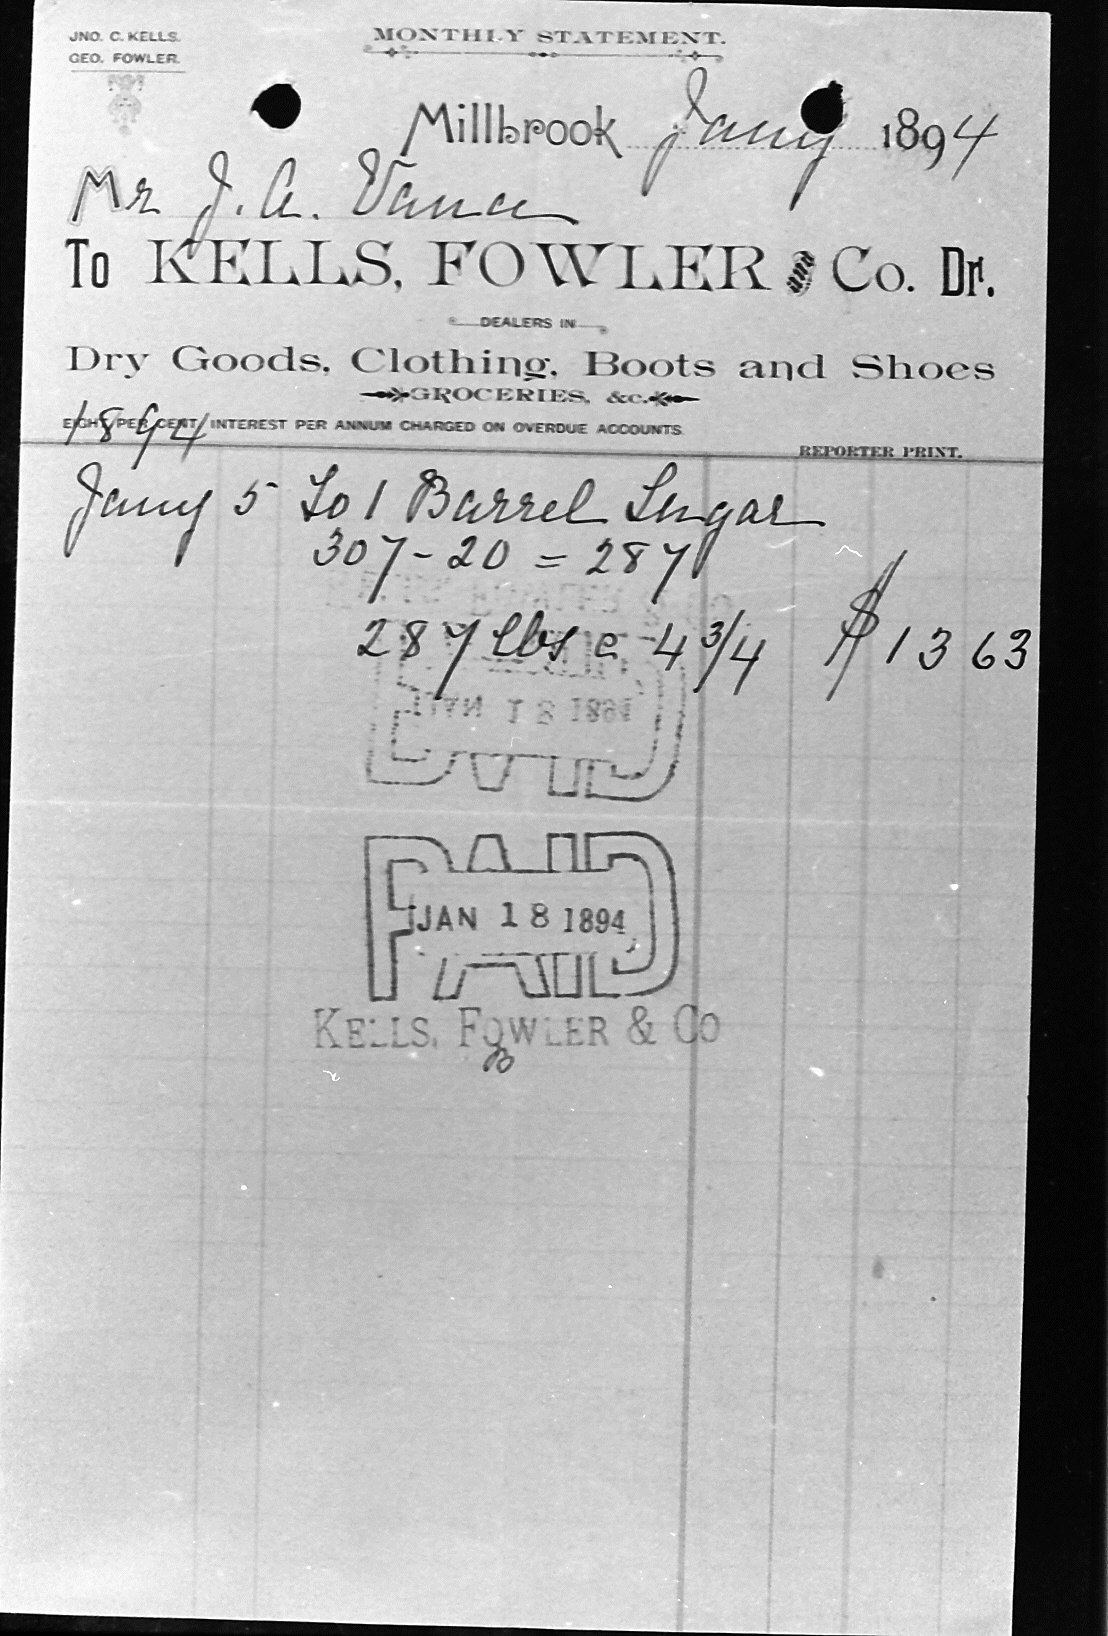 JNO. C. KELLS.
GEO. FOWLER.
MONTHLY STATEMENT.
Millbrook Jany 1894
Mr J. A. Vance
To KELLS, FOWLER and Co. Dr.
DEALERS IN
Dry Goods, Clothing, Boots and Shoes
GROCERIES, &c.
EIGHT PER CENT INTEREST PER ANNUM CHARGED ON OVERDUE ACCOUNTS
REPORTER PRINT.
1894
Jany 5 To 1 Barrel Sugar
307 - 20 = 287
287 lbs @ 4 3/4 $13 63
PAID
JAN 18 1894
KELLS, FOWLER & CO